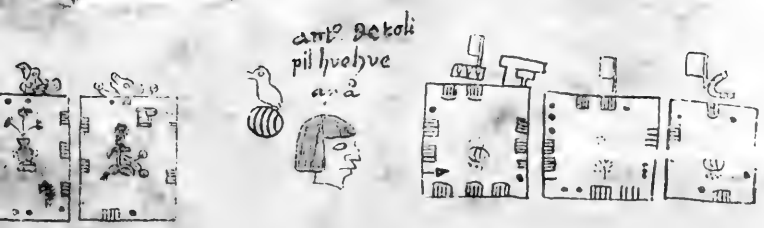 antº. de toli
pil huehue